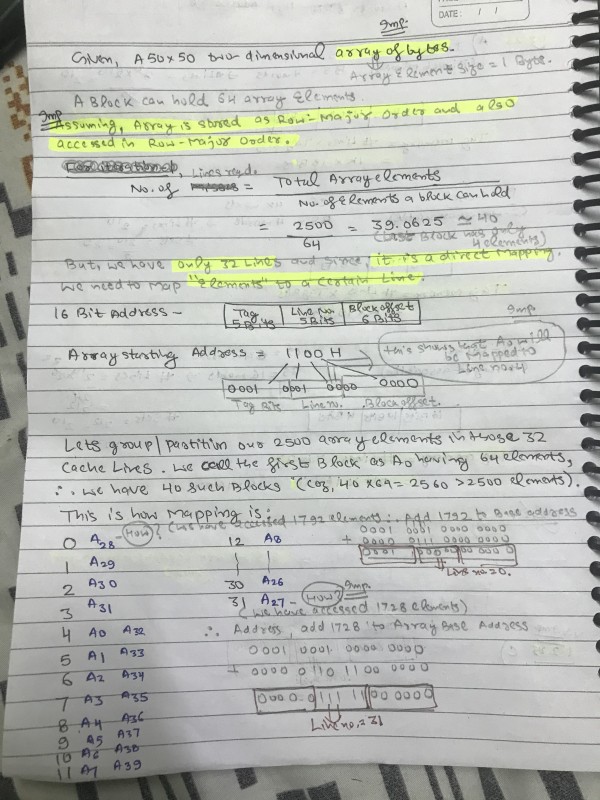 Imp.
DATE: / /
Given, A 50x50 two-dimensional array of bytes.
Array Element Size = 1 Byte.
A Block can hold 64 array Elements.
Imp
Assuming, Array is stored as Row-Major Order and also
accessed in Row-Major Order.
Lines reqd.
No. of = Total Array elements
No. of Elements a block can hold
= 2500 = 39.0625 ≈ 40
64
(Last Block has only
4 elements)
But, we have only 32 Lines and since, it is a direct mapping,
we need to map "Elements" to a certain Line.
16 Bit Address - Tag Line No. Block offset
5 Bits 5 Bits 6 Bits
Imp.
Array starting Address = 1100 H
this shows that A0 will
be mapped to
Line no 4
0001 0001 0000 0000
Line no. Block offset.
Lets group/partition our 2500 array elements in those 32
Cache Lines. We call the first Block as A0 having 64 elements,
∴ we have 40 such Blocks (coz, 40 x 64 = 2560 > 2500 elements).
This is how Mapping is:
HOW? (We have accessed 1792 elements ∴ Add 1792 to Base address
0 A28 12 A8 0001 0001 0000 0000
+ 0000 0111 0000 0000
1 A29
Line no = 0.
2 A30 30 A26
3 A31 31 A27 - HOW? Imp.
(We have accessed 1728 elements)
4 A0 A32 ∴ Address, add 1728 to Array Base Address
5 A1 A33 0001 0001 0000 0000
6 A2 A34 + 0000 0110 1100 0000
7 A3 A35
8 A4 A36
Line no. = 31
9 A5 A37
10 A6 A38
11 A7 A39